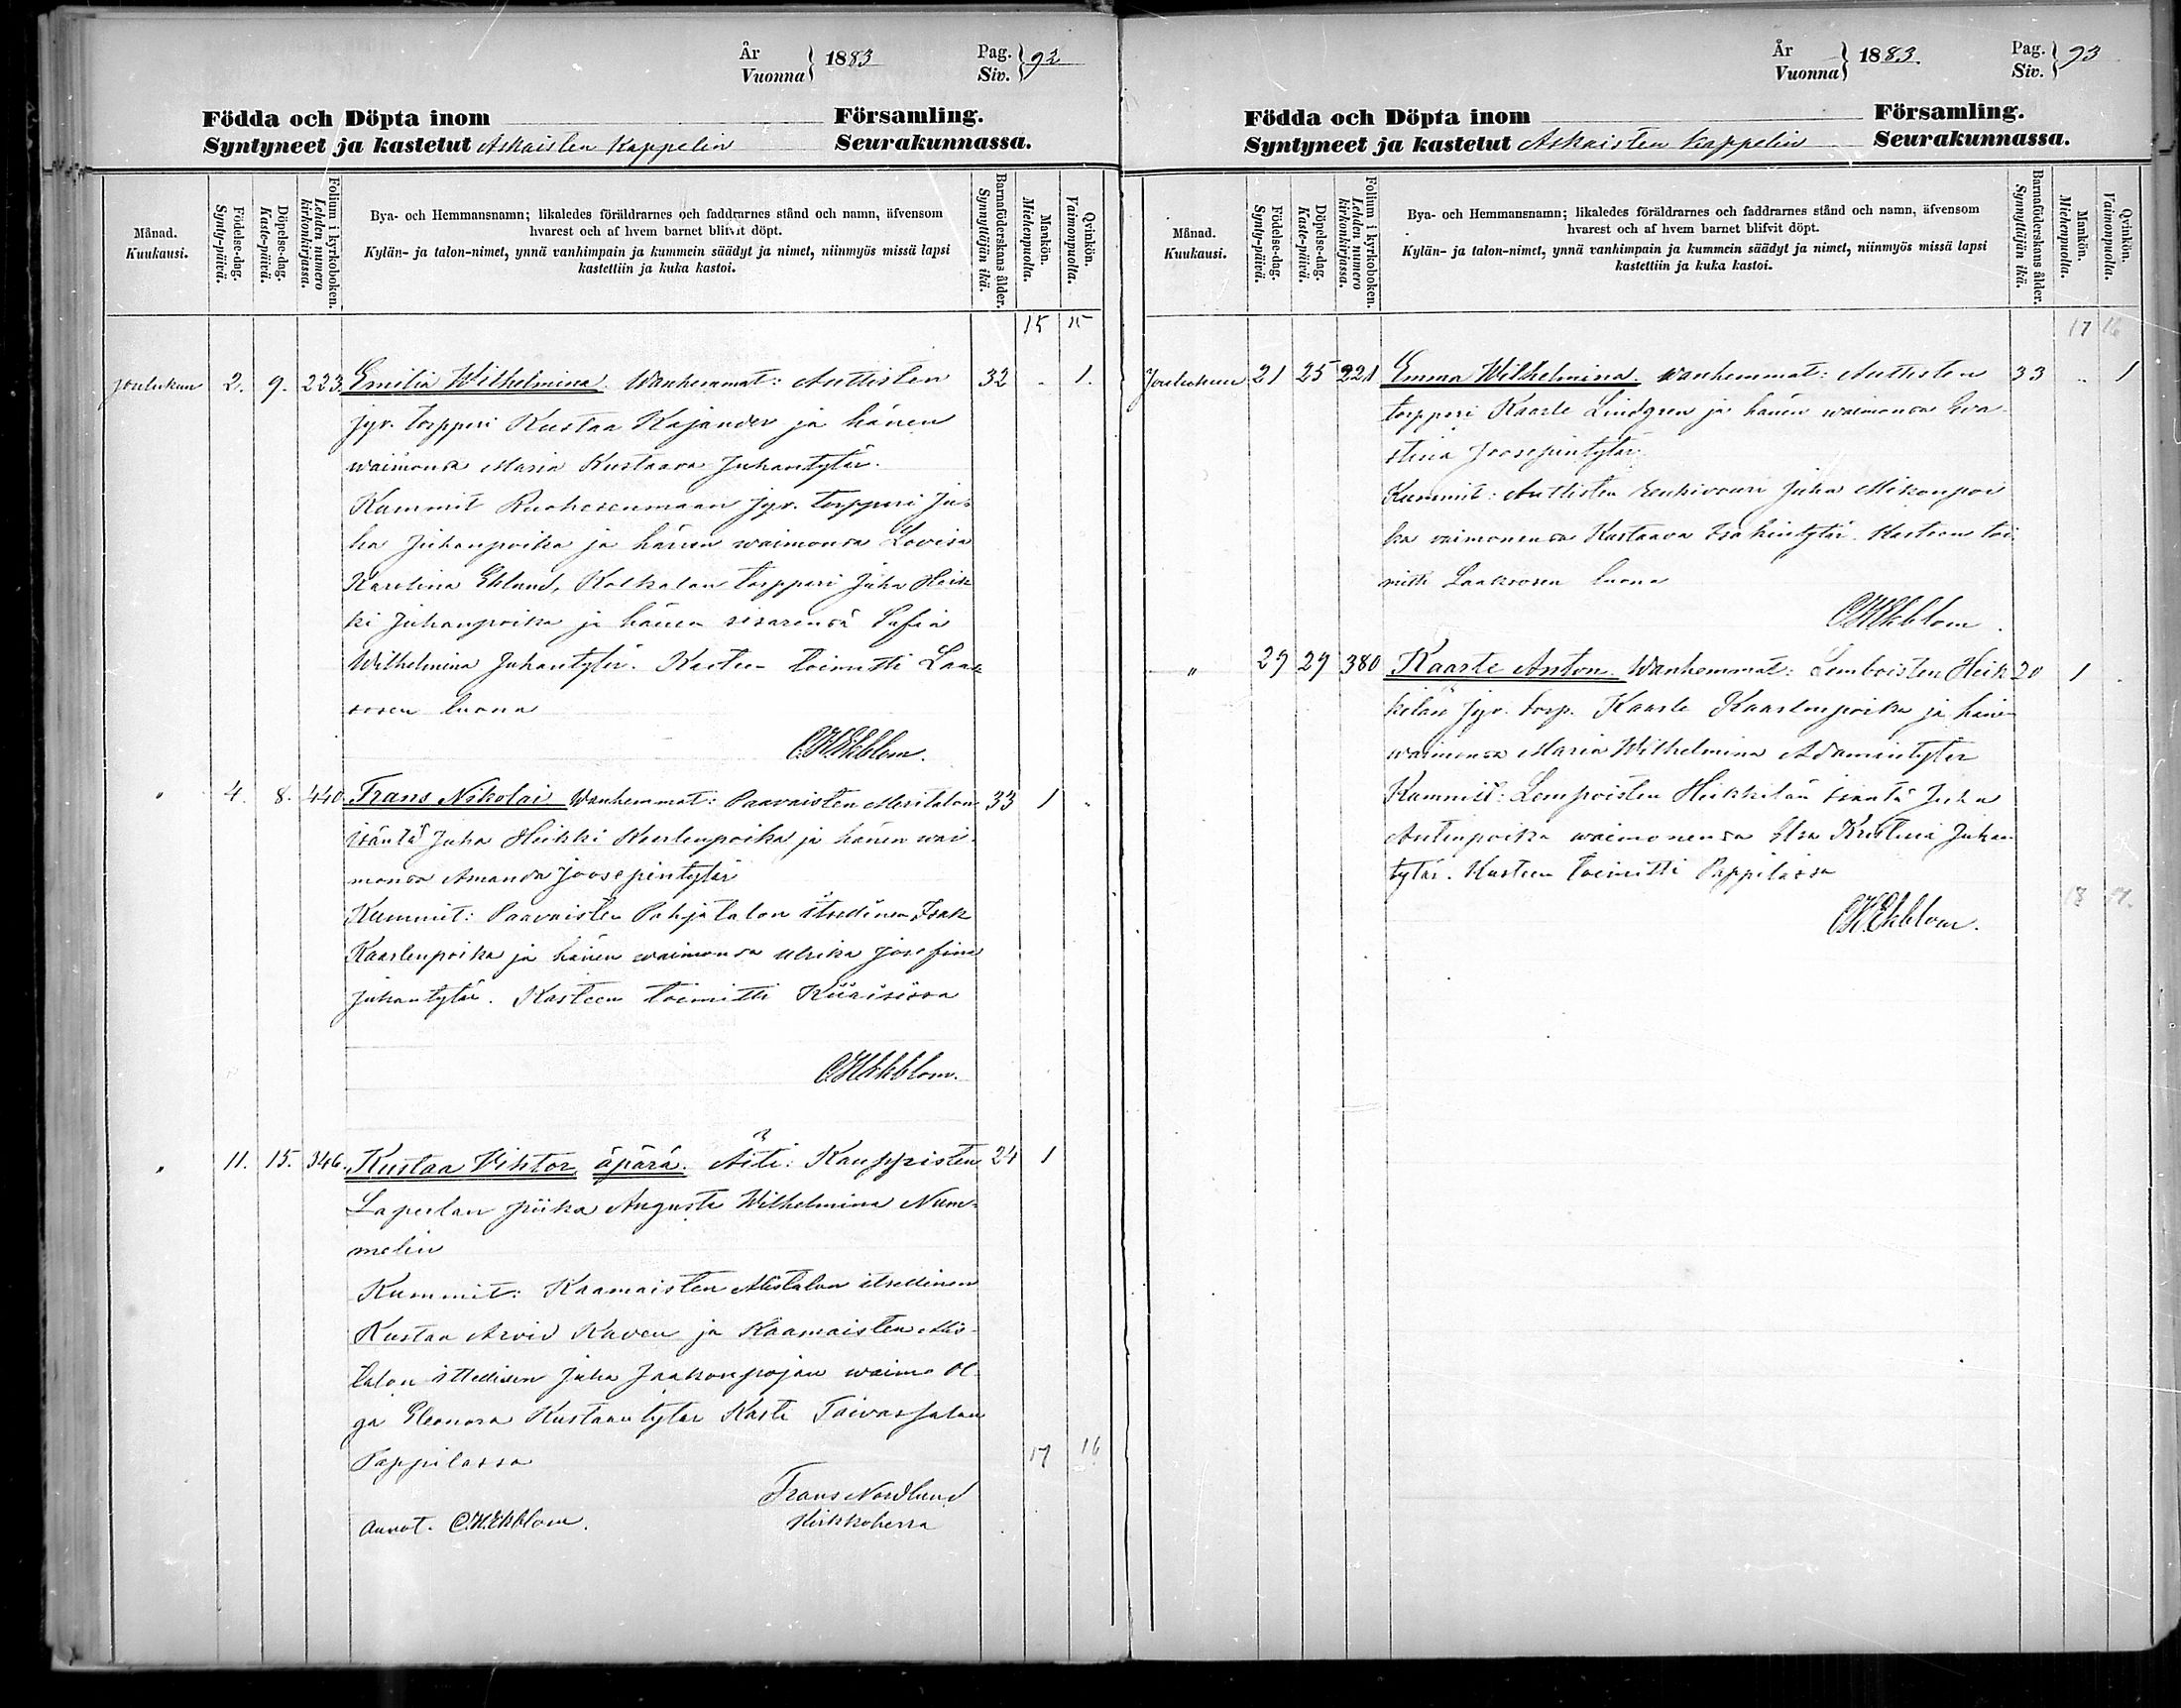 År
Vuonna } 1883 Pag.
Siv. } 92
Födda och Döpta inom Församling.
Syntyneet ja kastetut Askaisten Kappelin Seurakunnassa.
Månad.
Kuukausi.
Födelse-dag.
Synty-päivä.
Döpelse-dag.
Kaste-päivä.
Folium i kyrkoboken.
Lehden numero
kirkonkirjassa.
Bya- och Hemmansnamn; likaledes föräldrarnes och faddrarnes stånd och namn, äfvensom
hvarest och af hvem barnet blifvit döpt.
Kylän- ja talon-nimet, ynnä vanhimpain ja kummein säädyt ja nimet, niinmyös missä lapsi
kastettiin ja kuka kastoi.
Barnaföderskans ålder.
Synnyttäjän ikä.
Mankön.
Miehenpuolta.
Qvinkön.
Vaimonpuolta.
15 15
Joulukuu 2. 9. 223. Emilia Wilhelmina. Wanhemmat: Auttisten 32 - 1.
jyv. torppari Kustaa Kajander ja hänen
waimonsa Maria Kustaava Juhantytär.
Kummit Ruohosenmaan jyv. torppari Ju-
ha Juhanpoika ja hänen waimonsa Lovisa
Karolina Eklund, Kalkalan torppari Juha Heik
ki Juhanpoika ja hänen sisarensa Sofia
Wilhelmina Juhantytär. Kasteen toimitti Laak
sosen luona
C.H.Ekblom.
" 4. 8. 440. Frans Nikolai Wanhemmat: Paavaisten Meritalon 33 1
isäntä Juha Heikki Kaarlenpoika ja hänen wai-
monsa Amanda Joosepintytär
Kummit: Paavaisten Pohjatalon itsellinen Isak
Kaarlenpoika ja hänen waimonsa Ulrika Josefina
Juhantytär. Kasteen toimitti
C.H.Ekblom.
" 11. 15. 346. Kustaa Viktor äpärä. Äiti: Kauppisten 24 1
Laperlan piika Augusta Wilhelmina Num-
melin
Kummit: Kaamaisten Alistalon itsellinen
Kustaa Arvid Kaven ja Kaamaisten Alis-
talon ittellisen Juha Jaakonpojan waimo Ol-
ga Eleonora Kustaantytär Kaste Taivassalon
Pappilassa
17 16
Frans Nordlund
Kirkkoherra
Annot. C.H.Ekblom.
År
Vuonna } 1883. Pag.
Siv. } 93
Födda och Döpta inom Församling.
Syntyneet ja kastetut Askaisten Kappelin Seurakunnassa.
Månad.
Kuukausi.
Födelse-dag.
Synty-päivä.
Döpelse-dag.
Kaste-päivä.
Folium i kyrkoboken.
Lehden numero
kirkonkirjassa.
Bya- och Hemmansnamn; likaledes föräldrarnes och faddrarnes stånd och namn, äfvensom
hvarest och af hvem barnet blifvit döpt.
Kylän- ja talon-nimet, ynnä vanhimpain ja kummein säädyt ja nimet, niinmyös missä lapsi
kastettiin ja kuka kastoi.
Barnaföderskans ålder.
Synnyttäjän ikä.
Mankön.
Miehenpuolta.
Qvinkön.
Vaimonpuolta.
17 16
Joulukuu 21 25 221 Emma Wilhelmina. Wanhemmat: Auttisten 33 .. 1
torppari Kaarle Lindgren ja hänen waimonsa Eva
stina Joosepintytär.
Kummit: Auttisten Juha Mikonpoi
ka vaimonensa Kustaava Isakintytär. Kasteen toi
mitti Laaksosen luona
C.H.Ekblom.
" 29 29 380 Kaarle Anton. Wanhemmat: Lemboisten Heik 20 1
kilän jyv. torp. Kaarle Kaarlenpoika ja hänen
waimonsa Maria Wilhelmina Adamintytär
Kummit: Lempoisten Heikkilän isäntä Juha
Antinpoika waimonensa Elsa Kristina Juhan
tytär. Kasteen toimitti Pappilassa
18 17.
C.H.Ekblom.